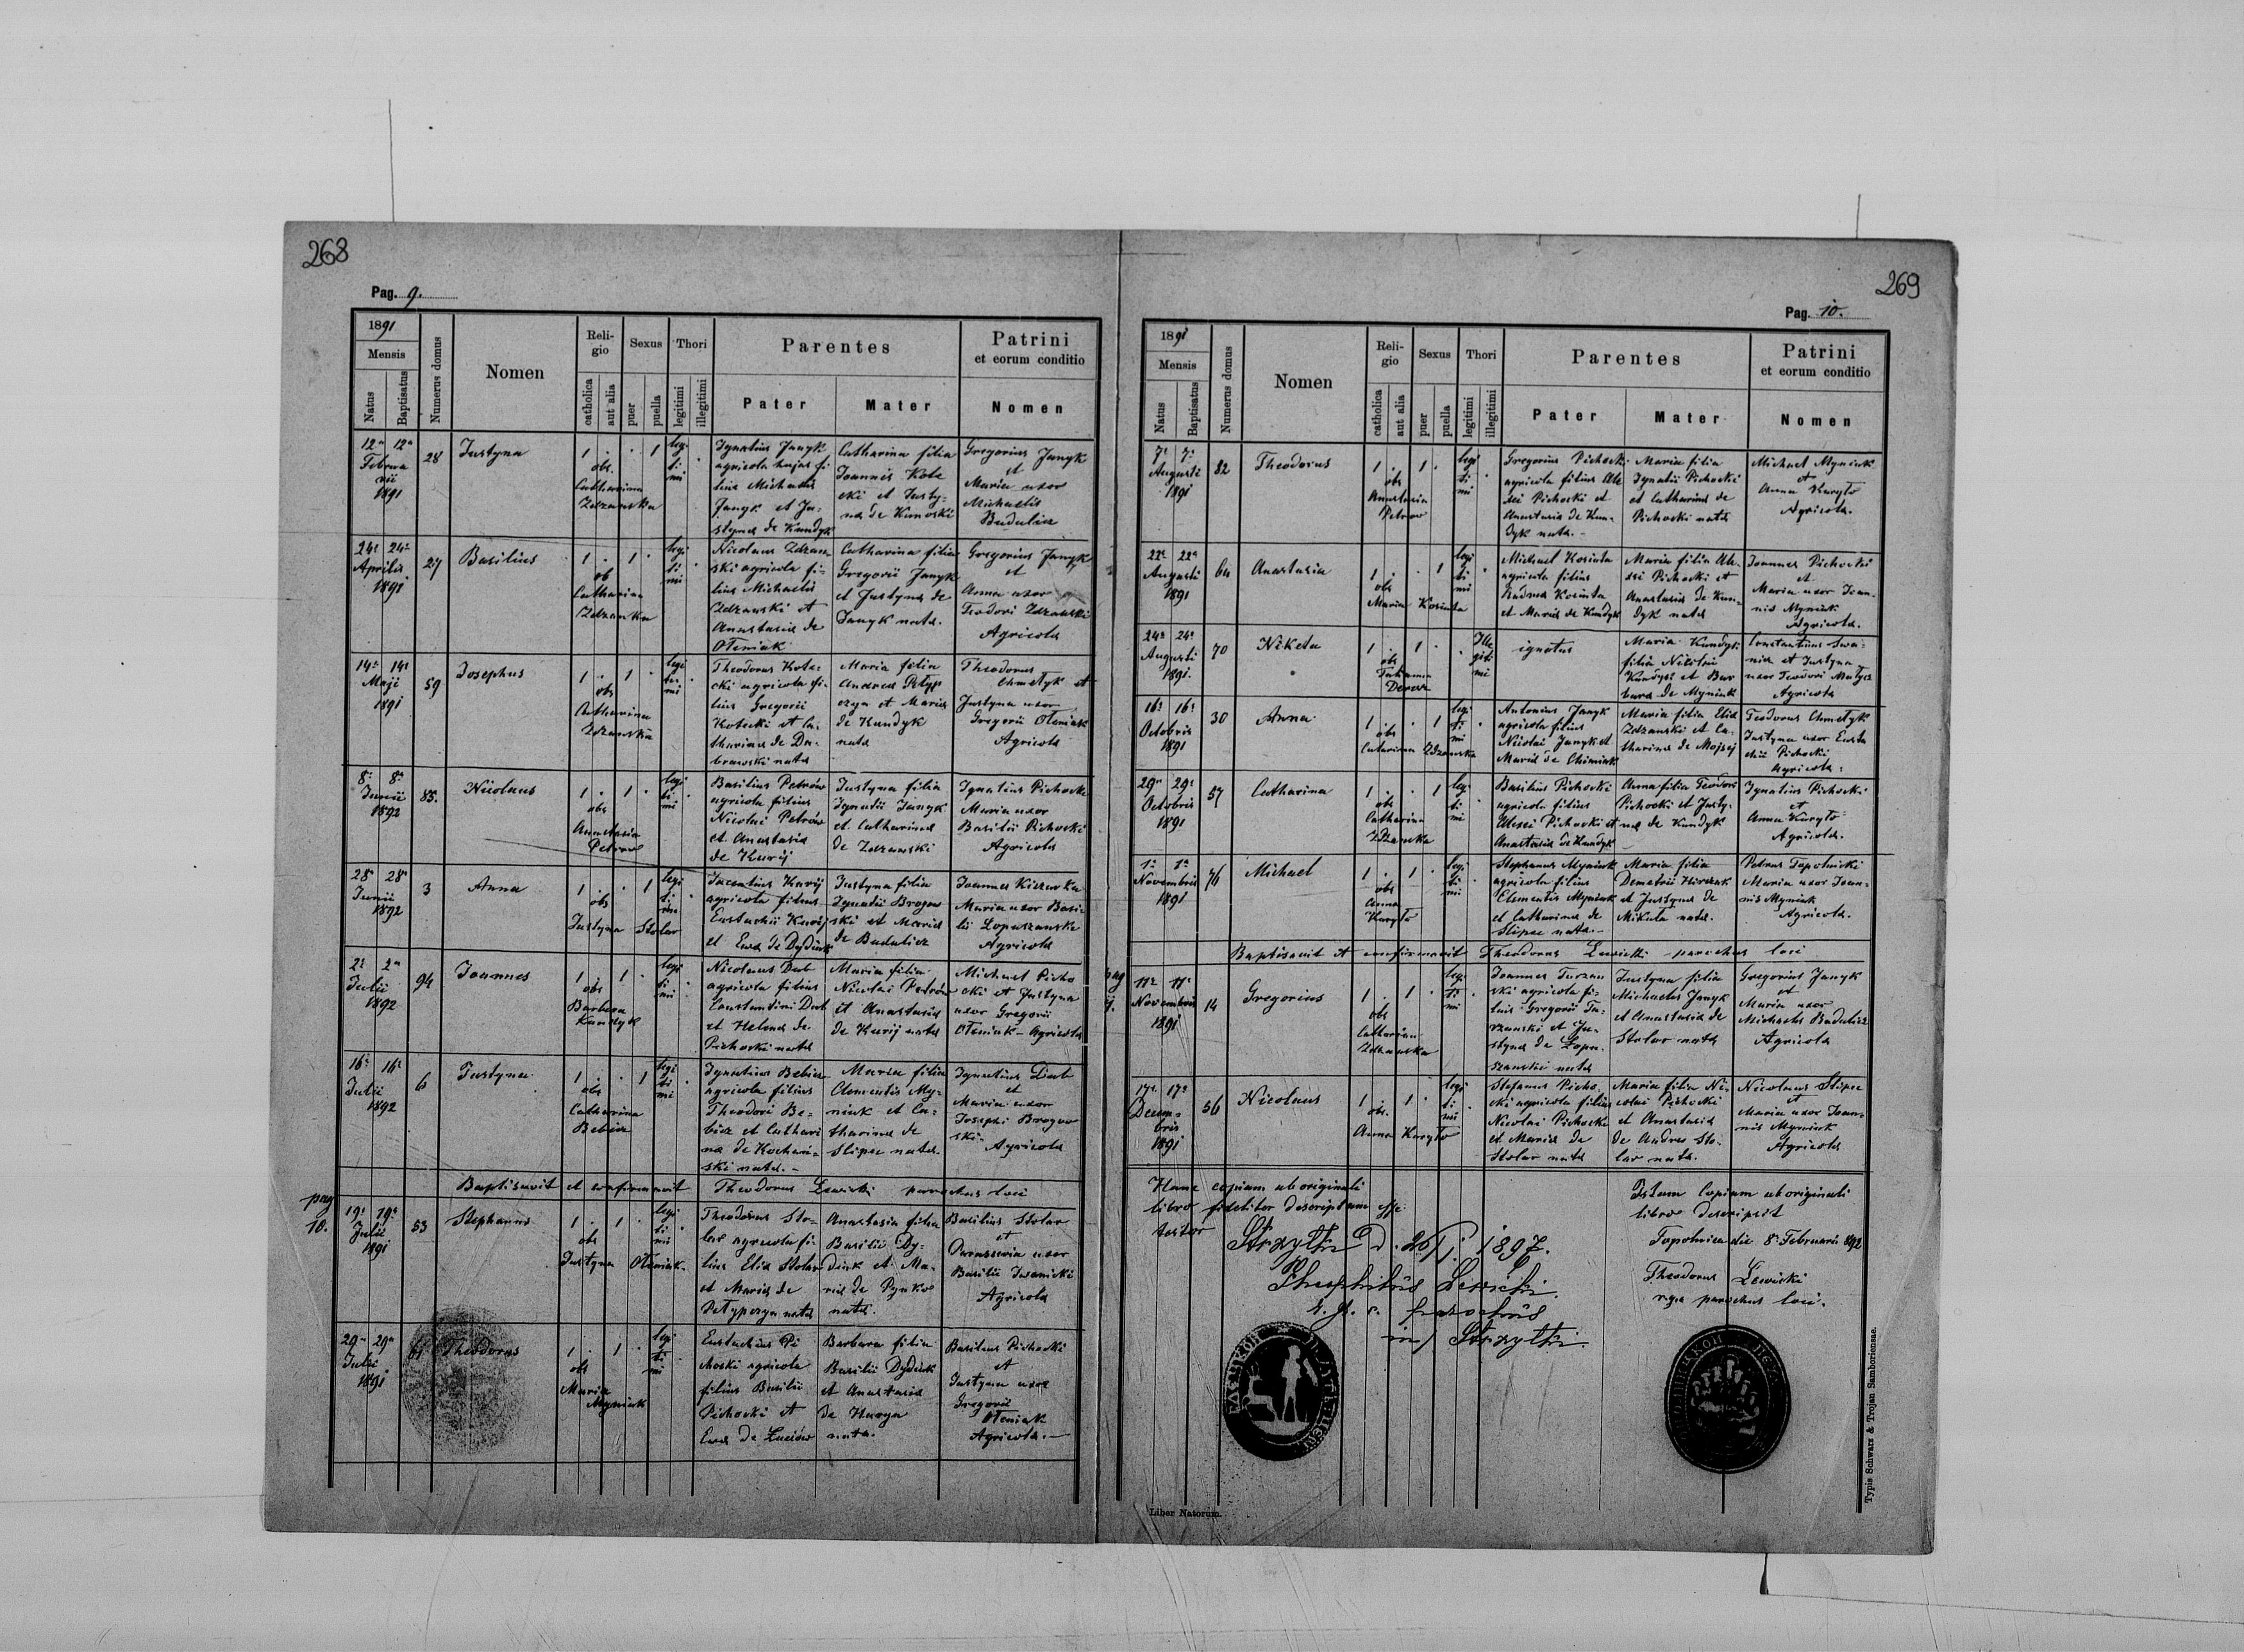 268
Pag. 9.
1891
Mensis
Natus
Baptisatus
Numerus domus
Nomen
Religio
catholica
aut alia
Sexus
puer
puella
Thori
legitimi
illegitimi
Parentes
Pater
Mater
Patrini
et eorum conditio
Nomen
12a 12a
Februa
rii
1891
28
Justyna
1 . . 1
legi
ti
mi
obs.
Catharina
Zdzanska
Ignatius Janyk
agricola hujas fi
lius Michaelis
Janyk et Ju-
styna de Kundyk
Catharina filia
Joannis Kote
cki et Justy-
na de Kunoski
Gregorius Janyk
et
Maria uxor
Michaelis
Badulicz
24a 24a
Aprilis
1891
27
Basilius
1 . 1 .
legi
ti
mi
ob
Catharina
Zdzanska
Nicolaus Zdzan
ski agricola fi-
lius Michaelis
Zdzanski et
Anastasia de
Oleniak
Catharina filia
Gregorii Janyk
et Justyna de
Janyk nata.
Gregorius Janyk
et
Anna uxor
Teodori Zdzanski
Agricola
14a 14a
Maji
1891
59
Josephus
1 . 1 .
obs
Catharina
Zdzanska
Theodorus Kote-
cki agricola fi-
lius Gregorii
Kotecki et Ca-
tharina de Du-
browski nata
Maria filia
Andrea Petyp
czya et Maria
de Kundyk
nata
Theodorus
Chmelyk et
Justyna uxor
Gregorii Oleniak
Agricola
8a 8a
Junii
1892
85.
Nicolaus
1 . 1 .
legi
ti
mi
obs
Anastasia
Petrow
Basilius Petrów
agricola filius
Nicolai Petrów
et Anastasia
de Kurij
Justyna filia
Ignatii Janyk
et Catharina
de Zdzanski
Ignatius Pichocki
Maria uxor
Basilii Pichocki
Agricola
28a 28a
Junii
1892
3
Anna
1 . . 1
legi
ti
mi
obs
Justyna Stolar
Kurij
agricola filius
Eustachii Kurij
et Eva de Dydiuk
Justyna filia
Ignatii Brogow
ski et Maria
de Badulicz
Joannes
Maria uxor Basi-
lii Lopuszanski
Agricola
2a 2a
Julii
1892
94
Joannes
1 . 1 .
legi
ti
mi
obs
Barbara
Kundyk
Nicolaus Dub
agricola filius
Constantini Dub
et Helena de
Pichocki nata
Maria filia
Nicolai Petrów
et Anastasia
de Kurij nata
Michael Picho
cki et Justyna
uxor Gregorii
Oleniak - Agricola
16a 16a
Julii
1892
6
Justyna
1 . . 1
legi
ti
mi
obs
Catharina
Bebicz
Ignatius Bebicz
agricola filius
Theodori Be-
bicz et Cathari
na de Kochani-
ski nata. -
Maria filia
Clementis My-
niuk et Ca-
tharina de
Slipec nata.
Ignatius Dub
et
Maria uxor
Josephi Brogow
ski
Agricola
Baptisavit et confirmavit Theodorus Lewicki parochus loci
pag
10.
19a 19a
Julii
1891
53
Stephanus
1 . 1 .
legi
ti
mi
obs
Justyna Oleniak
Theodorus Sto-
lar agricola fi-
lius Elia Stolar
et Maria de
Petyperya nata
Anastasia filia
Basilii Dy-
diuk et Ma-
ria de Pynko
nata.
Basilius Stolar
et
Parascevia uxor
Basilii Iwanicki
Agricola
29a 29a
Julii
1891
61
Theodorus
1 . 1 .
legi
ti
mi
obs
Maria
Myniuk
Eustachius Pi
choski agricola
filius Basilii
Pichocki et
Eva de Luciów
Barbara filia
Basilii Dydiuk
et Anastasia
de
nata.
Basilius Pichocki
et
Justyna uxor
Gregorii
Oleniak
Agricola. -
269
Pag. 10.
1891
Mensis
Natus
Baptisatus
Numerus domus
Nomen
Religio
catholica
aut alia
Sexus
puer
puella
Thori
legitimi
illegitimi
Parentes
Pater
Mater
Patrini
et eorum conditio
Nomen
7a 7a
Augusti
1891
82
Theodorus
1 . 1 .
legi
ti
mi
obs
Anastasia
Petrow
Gregorius Pichocki
agricola filius Ale
xei Pichocki et
Anastasia de Kun-
dyk nata. -
Maria filia
Ignatii Pichocki
et Catharina de
Pichocki nata
Michael Myniuk
et
Anna Kuryło
Agricola.
22a 22a
Augusti
1891
64
Anastasia
1 . . 1
legi
ti
mi
obs
Maria Kosinta
Michael Kosinta
agricola filius
Kosinta
et Maria de Kundyk
Maria filia Ale-
xei Pichocki et
Anastasia de Kun-
dyk nata
Joannes Pichocki
et
Maria uxor Joan-
nis Myniuk
Agricola.
24a 24a
Augusti
1891.
70
Nikita
1 . 1 .
Ille
giti
mi
obs
ignotus
Maria Kundyk
filia Nicolai
Kundyk et Bar
bara de Myniuk
Constantinus Iwa-
nick et Justyna
uxor Teodori
Agricola
16a 16a
Octobris
1891
30
Anna
1 . . 1
legi
ti
mi
obs
Catarina Zdzanska
Antonius Janyk
agricola filius
Nicolai Janyk et
Maria de Chiminik
Maria filia Elia
Zdzanski et Ca-
tharina de Mojsej
Teodorus Chmelyk
Justyna uxor Eusta
chii Pichocki
Agricola.
29a 29a
Octobris
1891
57
Catharina
1 . . 1
legi
ti
mi
obs
Catharina
Zdzanska
Basilius Pichocki
agricola filius
Alexei Pichocki et
Anastasia de Kundyk
Anna filia Teodori
Pichocki et Justy-
na de Kundyk
Ignatius Pichocki
et
Anna Kuryło
Agricola.
1a 1a
Novembris
1891
76
Michael
1 . 1 .
legi
ti
mi
obs
Anna
Kuryło
Stephanus Myniuk
agricola filius
Clementis Myniuk
et Catharina de
Slipec nata. -
Maria filia
Demetrii
et Justyna de
Mikula nata.
Petrus Topolnicki
Maria uxor Joan-
nis Myniuk
Agricola.
Baptisavit et confirmavit Theodorus Lewicki parochus loci
pag
11a 11a
Novembris
1891
14
Gregorius
1 . 1 .
legi
ti
mi
obs
Catharina
Zdzanska
Joannes Turzan
ski agricola fi-
lius Gregorii Tu-
rzanski et Ju-
styna de Lopu-
szanski nata
Justyna filia
Michaelis Janyk
et Anastasia de
Stolar nata
Gregorius Janyk
et
Maria uxor
Michaelis Badulicz
Agricola
17a 17a
Decem-
bris
1891
56
Nicolaus
1 . 1 .
legi
ti
mi
obs.
Anna Kuryło
Stefanus Picho
cki agricola filius
Nicolai Pichocki
et Maria de
Stolar nata
Maria filia Ni-
colai Pichocki
et Anastasia
de Andreo Sto-
lar nata.
Nicolaus Slipec
et
Maria uxor Joan-
nis Myniuk
Agricola
Hanc copiam ab originali
libro fideliter descriptam esse
testor
Strzyłki d. 26/1. 1897.
Theophilus Lewicki.
g. r. c. parochus
in Strzyłki.
Istam Copiam ab originali
libro descripsit
Topolnica die 8a Februarii 892
Theodorus Lewicki
r.g.c parochus loci.
Liber Natorum.
Typis Schwarz & Trojan Samboriensae.